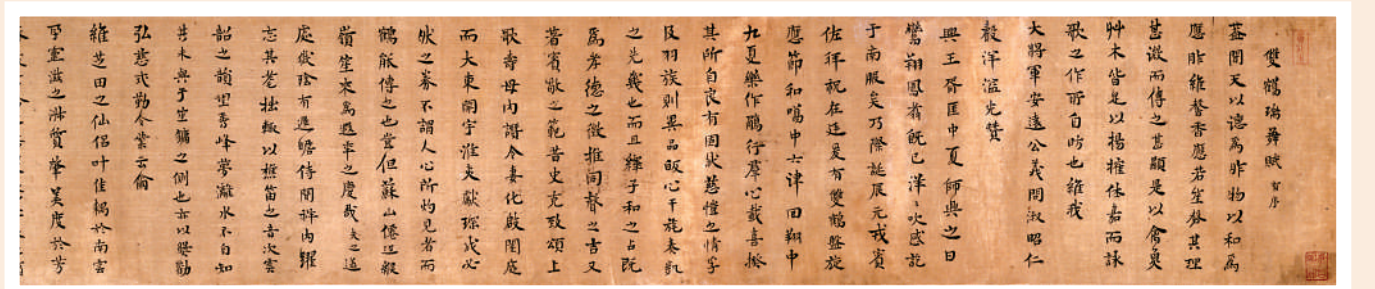 雙鶴瑞舞賦 有序
蓋聞天以德為 物以和為
應非維馨香應若 其理
甚溦而傳之甚顯是以禽魚
艸木皆足以揚搉休嘉而詠
歌之作所自昉也維我
大將軍安遠公義問淑昭仁
聲洋溢光贊
興王胥匡中夏師興之日
鸞翔鳳翥旣已洋洋 訖
于南服矣乃際誕辰元戎賓
佐拜祝在廷爰有雙鶴盤旋
應節和鳴中六律回翔中
九夏樂作 行羣心載喜揆
其所自良有固狀慈愷之情孚
及羽族則異品皈心干旄未凱
之先幾也而且繹子和之占旣
為孝德之徵推同聲之吉又
著賓敬之範昔史克致頌上
歌壽母內諧令妻化啟閨庭
而大東開宇淮夷獻琛 必
狀之券不謂人心所灼見者而
鶴能傳之也 但蘇山僊迹緱
嶺笙來為遐舉之度哉夫之遁
處嶽陰有逖瞻侍聞 內躍
忘其老拙輒以樵笛之音次雲
韶之韻望香峰夢灕水不自知
其未與于笙鏞之側也亦以奬勸
弘慈式勤令業云爾
維芝田之仙侶叶佳耦於南雲
孕靈滋之 質肇 度於芳